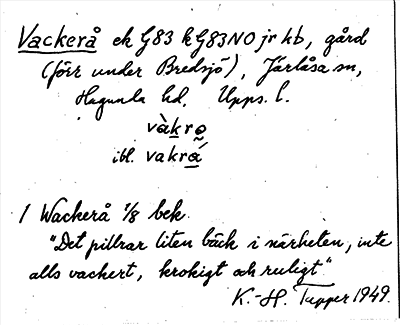 Vackerå ek G83 k G83NO jr kb, gård
(förr under Bredsjö), Järlåsa sn,
Hagunda hd, Upps. l.
vàkro
ibl. vakrá
1 Wackerå 1/8 bek
"Det pillrar liten bäck i närheten, inte
alls vackert, krokigt och ruligt."
K.-H. Tapper 1949.